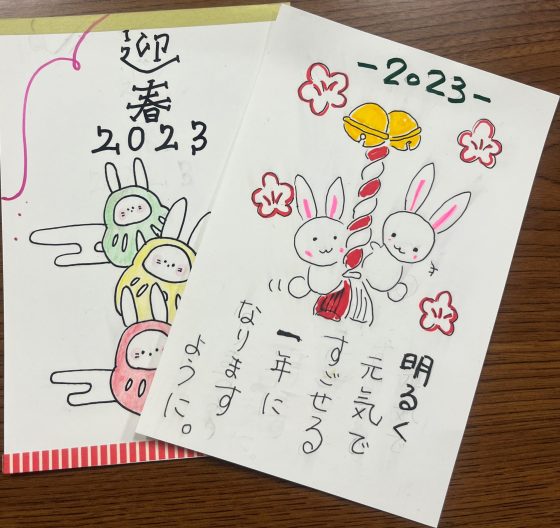 迎
春
2023
-2023-
明るく
元気で
すごせる
一年に
なります
ように。